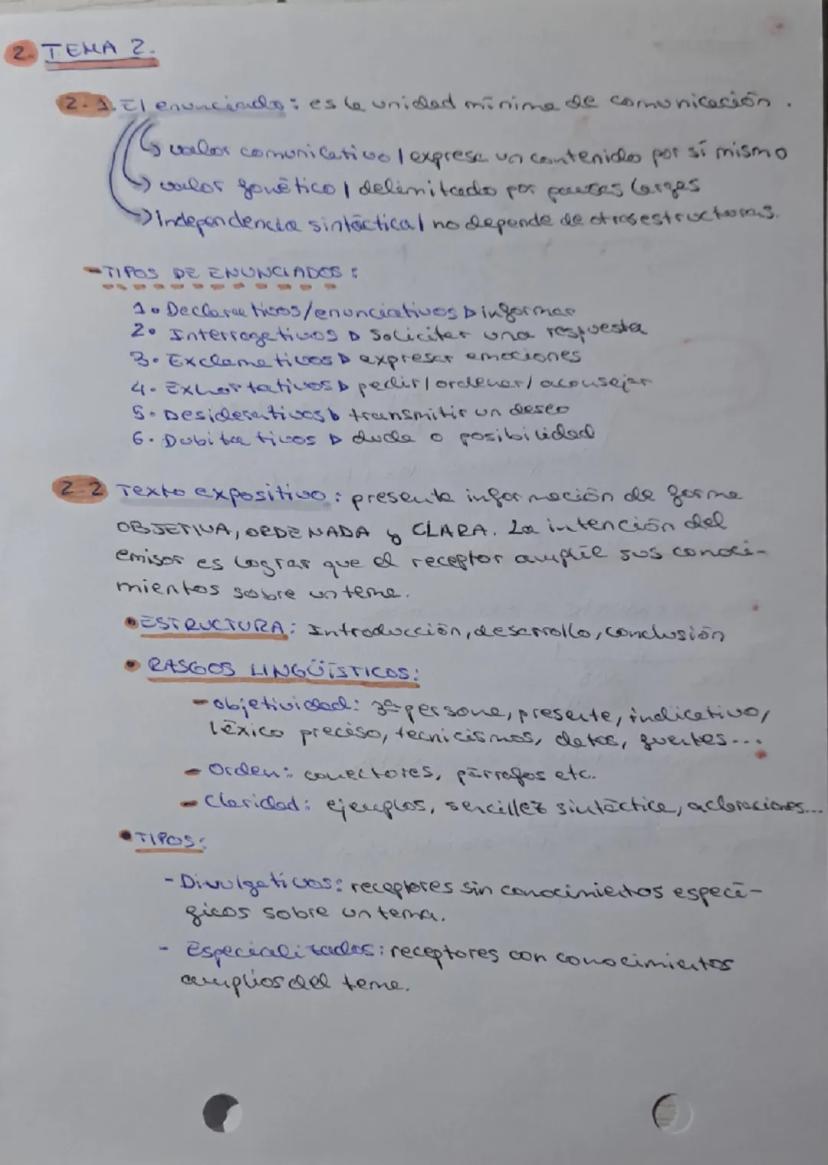 2. TEMA 2.
2.1. El enunciado: es la unidad mínima de comunicación.
↳ valor comunicativo / expresa un contenido por sí mismo
↳ valor fonético / delimitado por pautas largas
→ Independencia sintáctica / no depende de otras estructuras.
- TIPOS DE ENUNCIADOS:
1. Declarativos/enunciativos ▷ informar
2. Interrogativos ▷ solicitar una respuesta
3. Exclamativos ▷ expresar emociones
4. Exhortativos ▷ pedir/ordenar/aconsejar
5. Desiderativos ▷ transmitir un deseo
6. Dubitativos ▷ duda o posibilidad
2.2 Texto expositivo: presenta información de forma
OBJETIVA, ORDENADA y CLARA. La intención del
emisor es lograr que el receptor amplíe sus conoci-
mientos sobre un tema.
• ESTRUCTURA: Introducción, desarrollo, conclusión
• RASGOS LINGÜÍSTICOS:
- Objetividad: 3ª persona, presente, indicativo,
léxico preciso, tecnicismos, datos, fuentes...
- Orden: conectores, párrafos etc.
- Claridad: ejemplos, sencillez sintáctica, aclaraciones...
• TIPOS:
- Divulgativos: receptores sin conocimientos especí-
ficos sobre un tema.
- Especializados: receptores con conocimientos
amplios del tema.